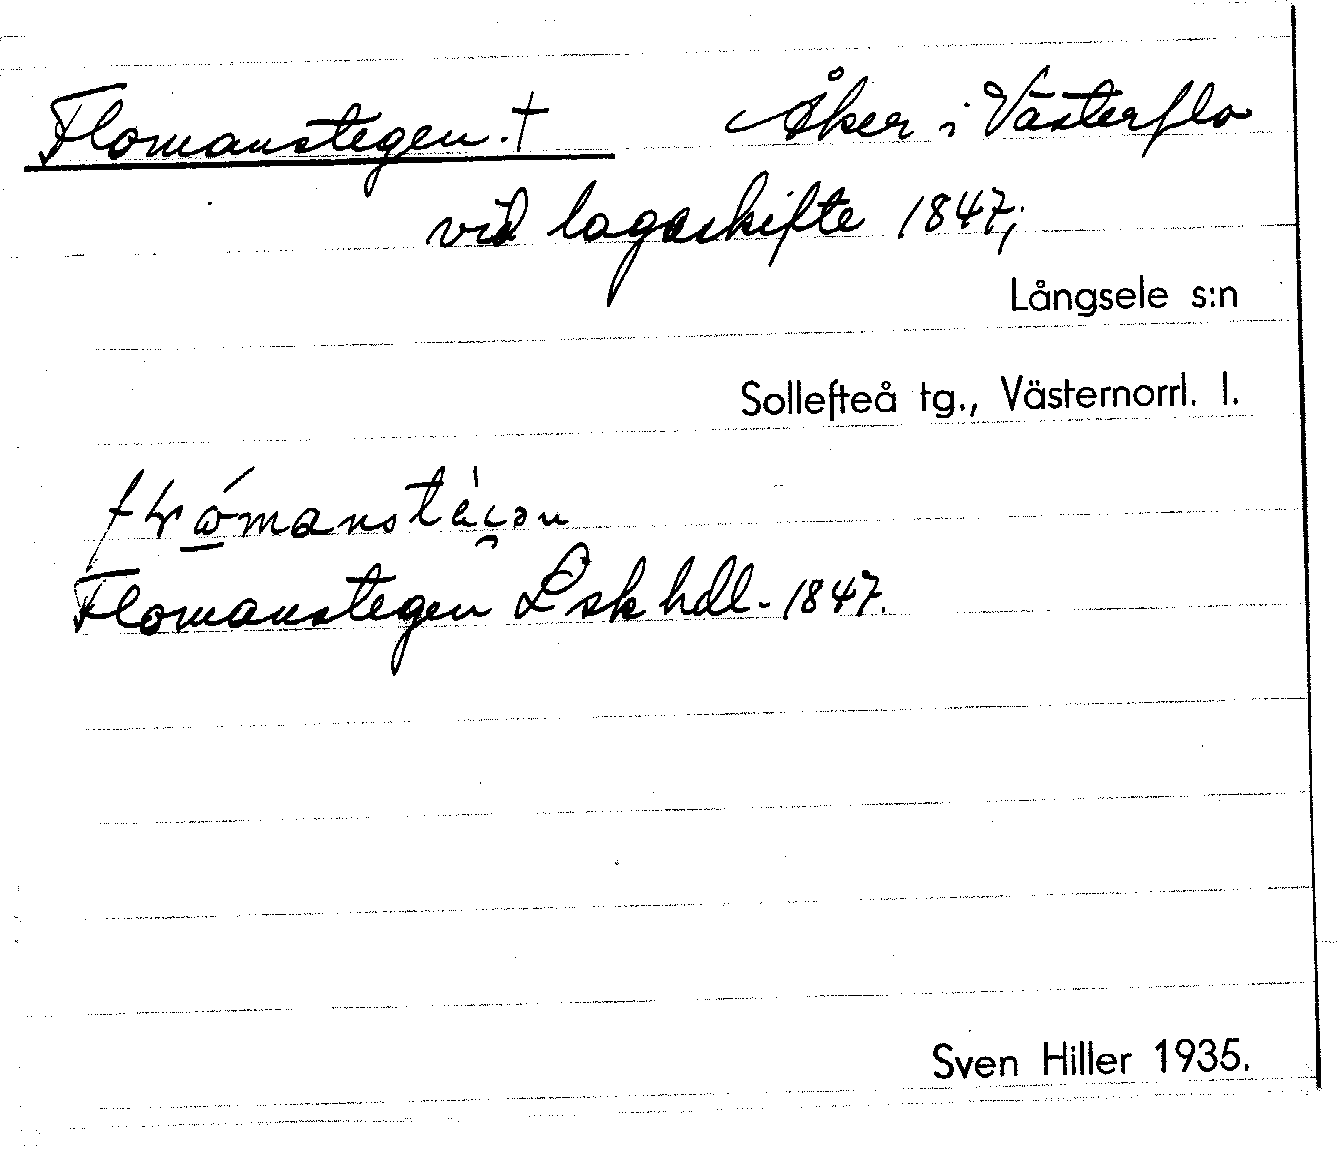 Flomanstegen. † Åker i Västerflo
vid lagaskifte 1847;
Långsele s:n
Sollefteå tg., Västernorrl. l.
Flomanstegen Lsk hdl. 1847.
Sven Hiller 1935.